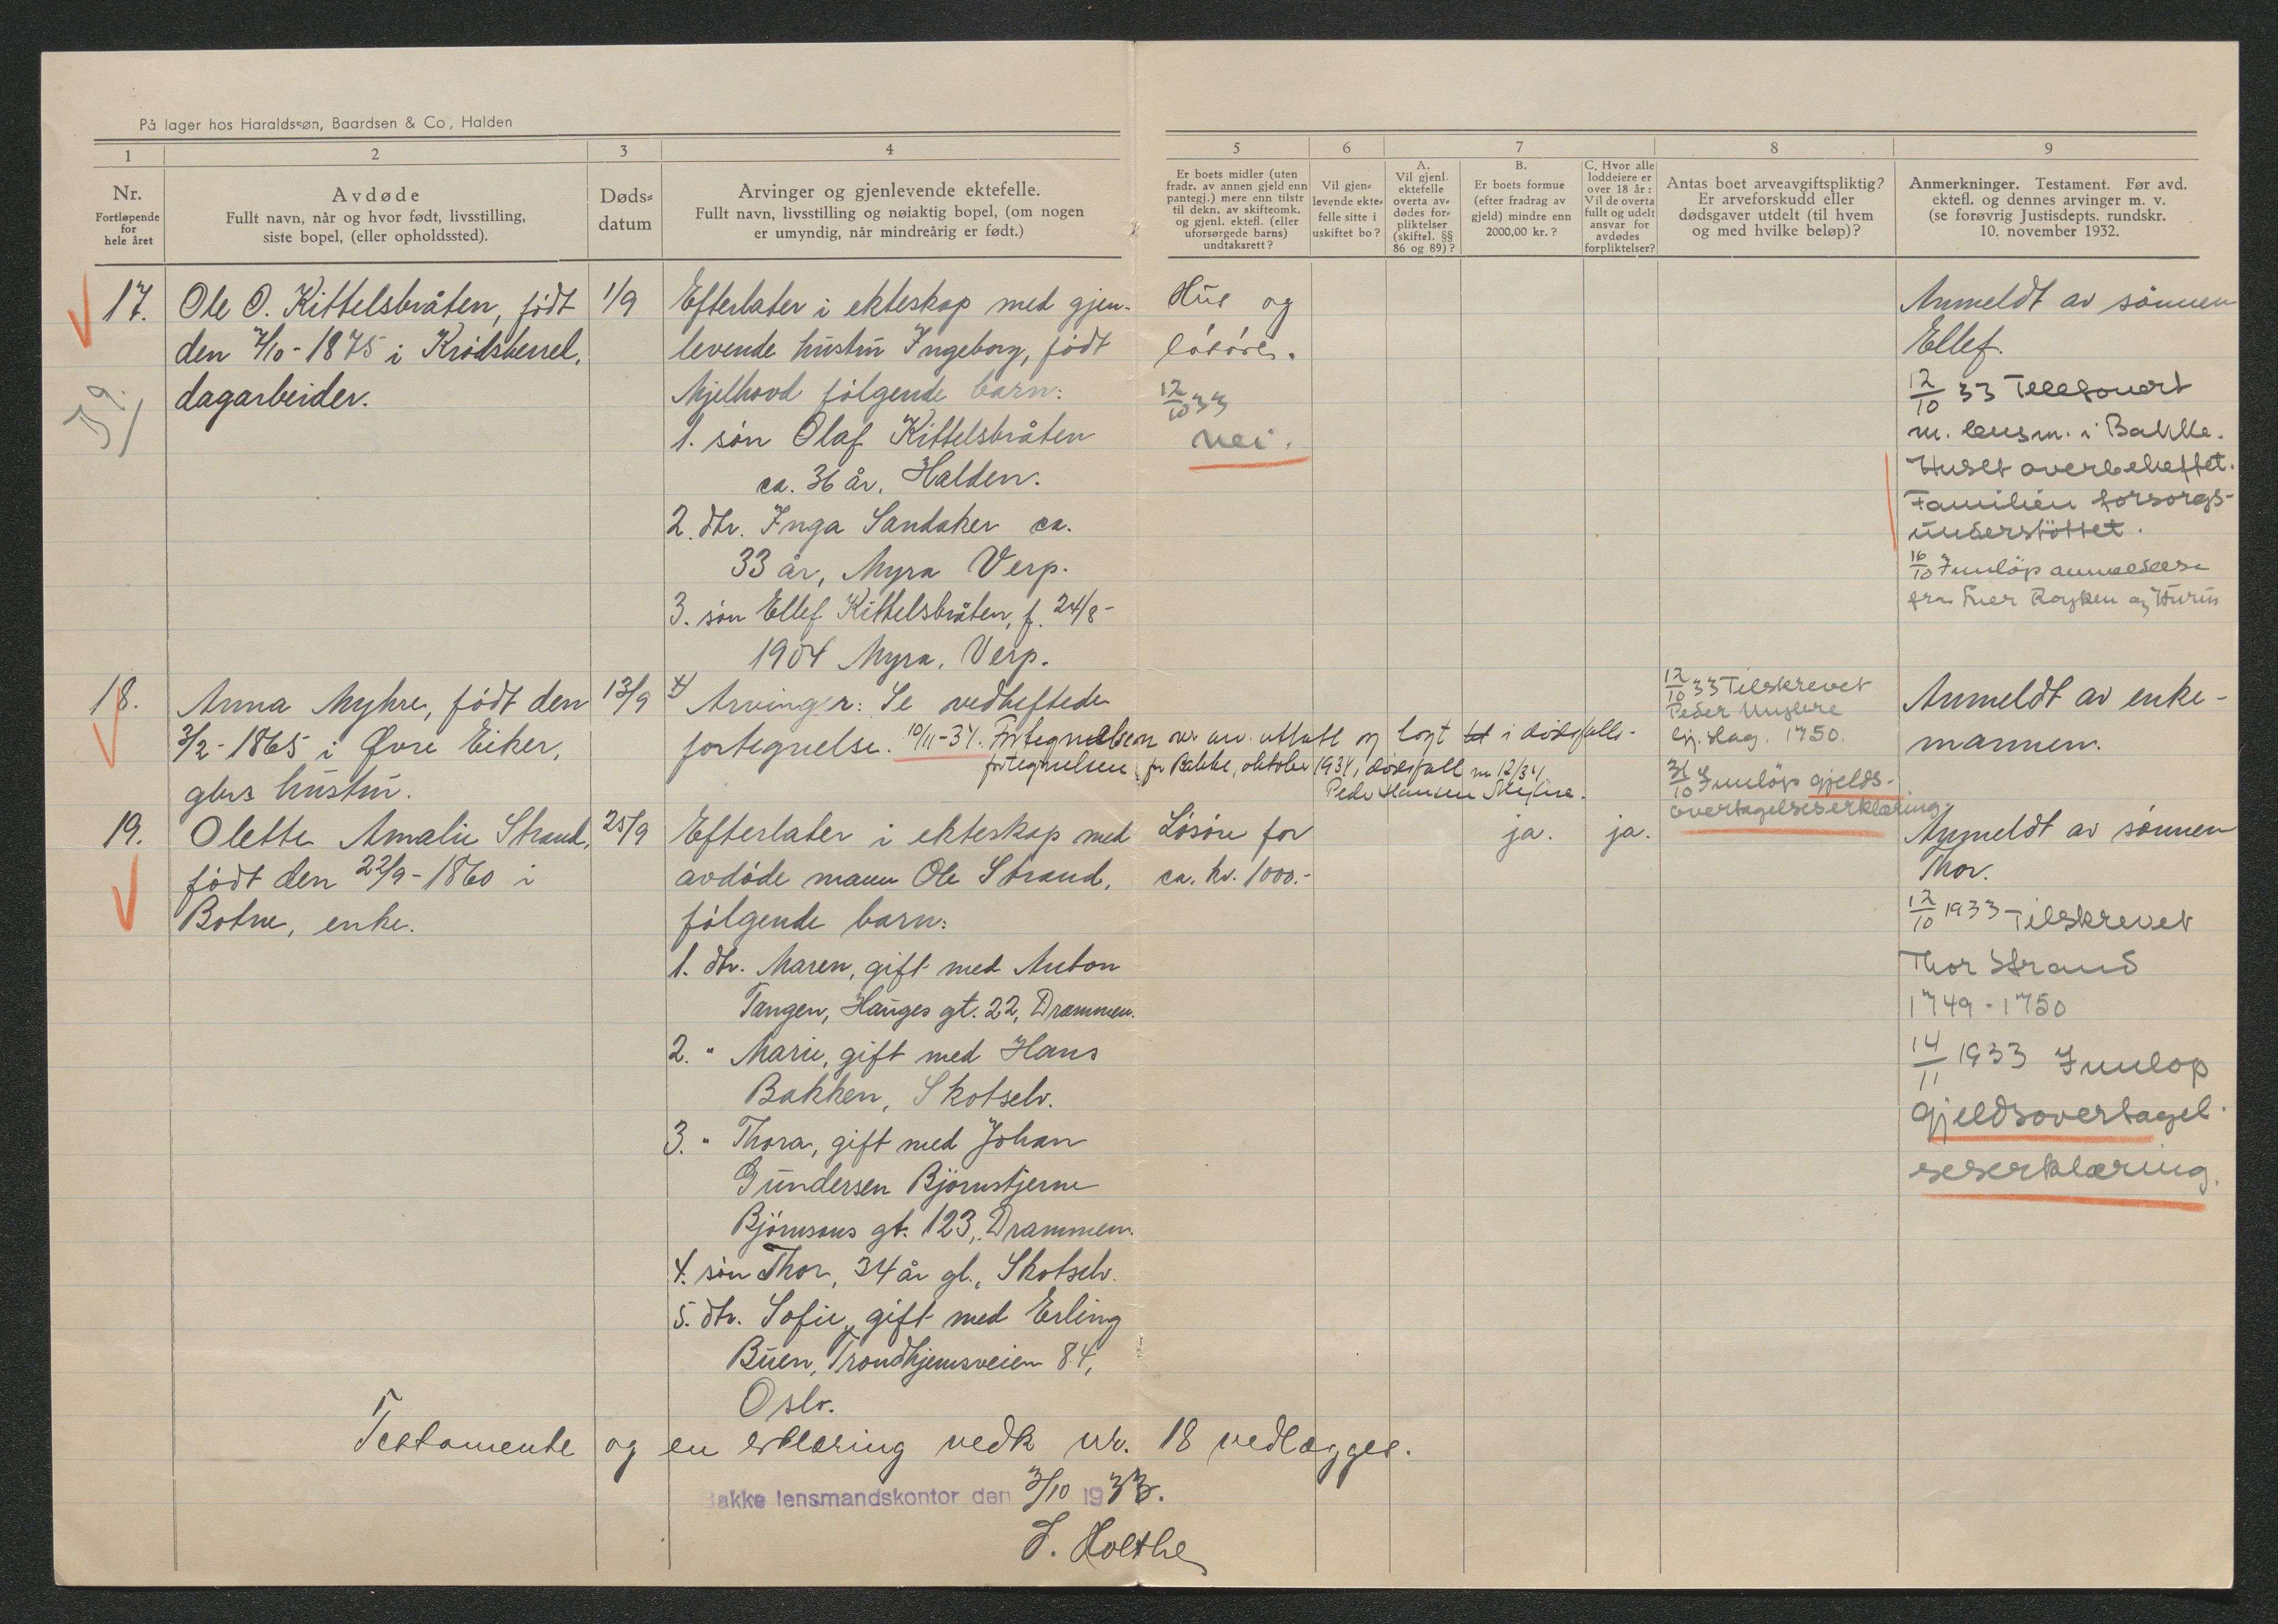 På lager hos Haraldssøn, Baardsen & Co, Halden
1 2 3 4 5 6 7 8 9
Nr.
Fortløpende
for
hele året
Avdøde
Fullt navn, når og hvor født, livsstilling,
siste bopel, (eller opholdssted).
Døds-
datum
Arvinger og gjenlevende ektefelle.
Fullt navn, livsstilling og nøiaktig bopel, (om nogen
er umyndig, når mindreårig er født.)
Er boets midler (uten
fradr. av annen gjeld enn
pantegj.) mere enn tilstr
til dekn. av skifteomk.
og gjenl. ektefl. (eller
uforsørgede barns)
undtaksrett?
Vil gjen-
levende ekte-
felle sitte i
uskiftet bo?
A.
Vil gjenl.
ektefelle
overta av-
dødes for-
pliktelser
(skiftel. §§
86 og 89)?
B.
Er boets formue
(efter fradrag av
gjeld) mindre enn
2000,00 kr.?
C. Hvor alle
loddeiere er
over 18 år:
Vil de overta
fullt og udelt
ansvar for
avdødes
forpliktelser?
Antas boet arveavgiftspliktig?
Er arveforskudd eller
dødsgaver utdelt (til hvem
og med hvilke beløp)?
Anmerkninger. Testament. Før avd.
ektefl. og dennes arvinger m. v.
(se forøvrig Justisdepts. rundskr.
10. november 1932.
17.
Ole O. Kittelsbråten, født
den 7/10-1875 i Krødsherred,
dagarbeider.
1/9
Efterlater i ekteskap med gjen-
levende hustru Ingeborg, født
Mjelhovd følgende barn:
1. søn Olaf Kittelsbråten
ca. 36 år, Halden.
2. dtr. Inga Sandaker ca.
33 år, Myra Verp.
3. søn Ellef Kittelsbråten, f. 24/8-
1904 Myra, Verp.
Hus og
løsøre.
12/10 33
nei.
Anmeldt av sønnen
Ellef.
12/10 33 Telefonert
m. lensm. i Bakke.
Huset overbeheftet.
Familien forsorgs-
understøttet.
16/10 Innløp anmeldelse
fra
18.
Anna Myhre, født den
3/2-1865 i Øvre Eiker,
gbrs hustru.
13/9
Arvinger: Se vedheftede
fortegnelse. 10/11-34. Fortegnelsen over arv. uttatt og lagt i dødsfalls-
fortegnelsen for Bakke, oktober 1934, dødsfall nr 12/34,
Peder Hansen Myhre.
12/10 33 Tilskrevet
Peder Myhre
1750.
31/10 Innløp gjelds-
overtagelseserklæring.
Anmeldt av enke-
mannen.
19.
Olette Amalie Strand,
født den 22/9-1860 i
Botne, enke.
25/9
Efterlater i ekteskap med
avdøde mann Ole Strand,
følgende barn:
1. dtr. Maren, gift med Anton
Tangen, Hauges gt. 22, Drammen.
2. " Marie, gift med Hans
Bakken, Skotselv.
3. " Thora, gift med Johan
Gundersen Bjørnstjerne
Bjørnsons gt. 123, Drammen.
4. søn Thor, 34 år gl., Skotselv.
5. dtr. Sofie, gift med Erling
Buen, Trondhjemsveien 84,
Oslo.
Løsøre for
ca. kr. 1000.-
ja.
ja.
Anmeldt av sønnen
Thor.
12/10 1933 Tilskrevet
Thor Strand
1749-1750
14/11 1933 Innløp
gjeldsovertagel-
seserklæring.
Testamente og en erklæring vedk nr. 18 vedlægges.
Bakke lensmandskontor den 3/10 1933.
S. Holthe